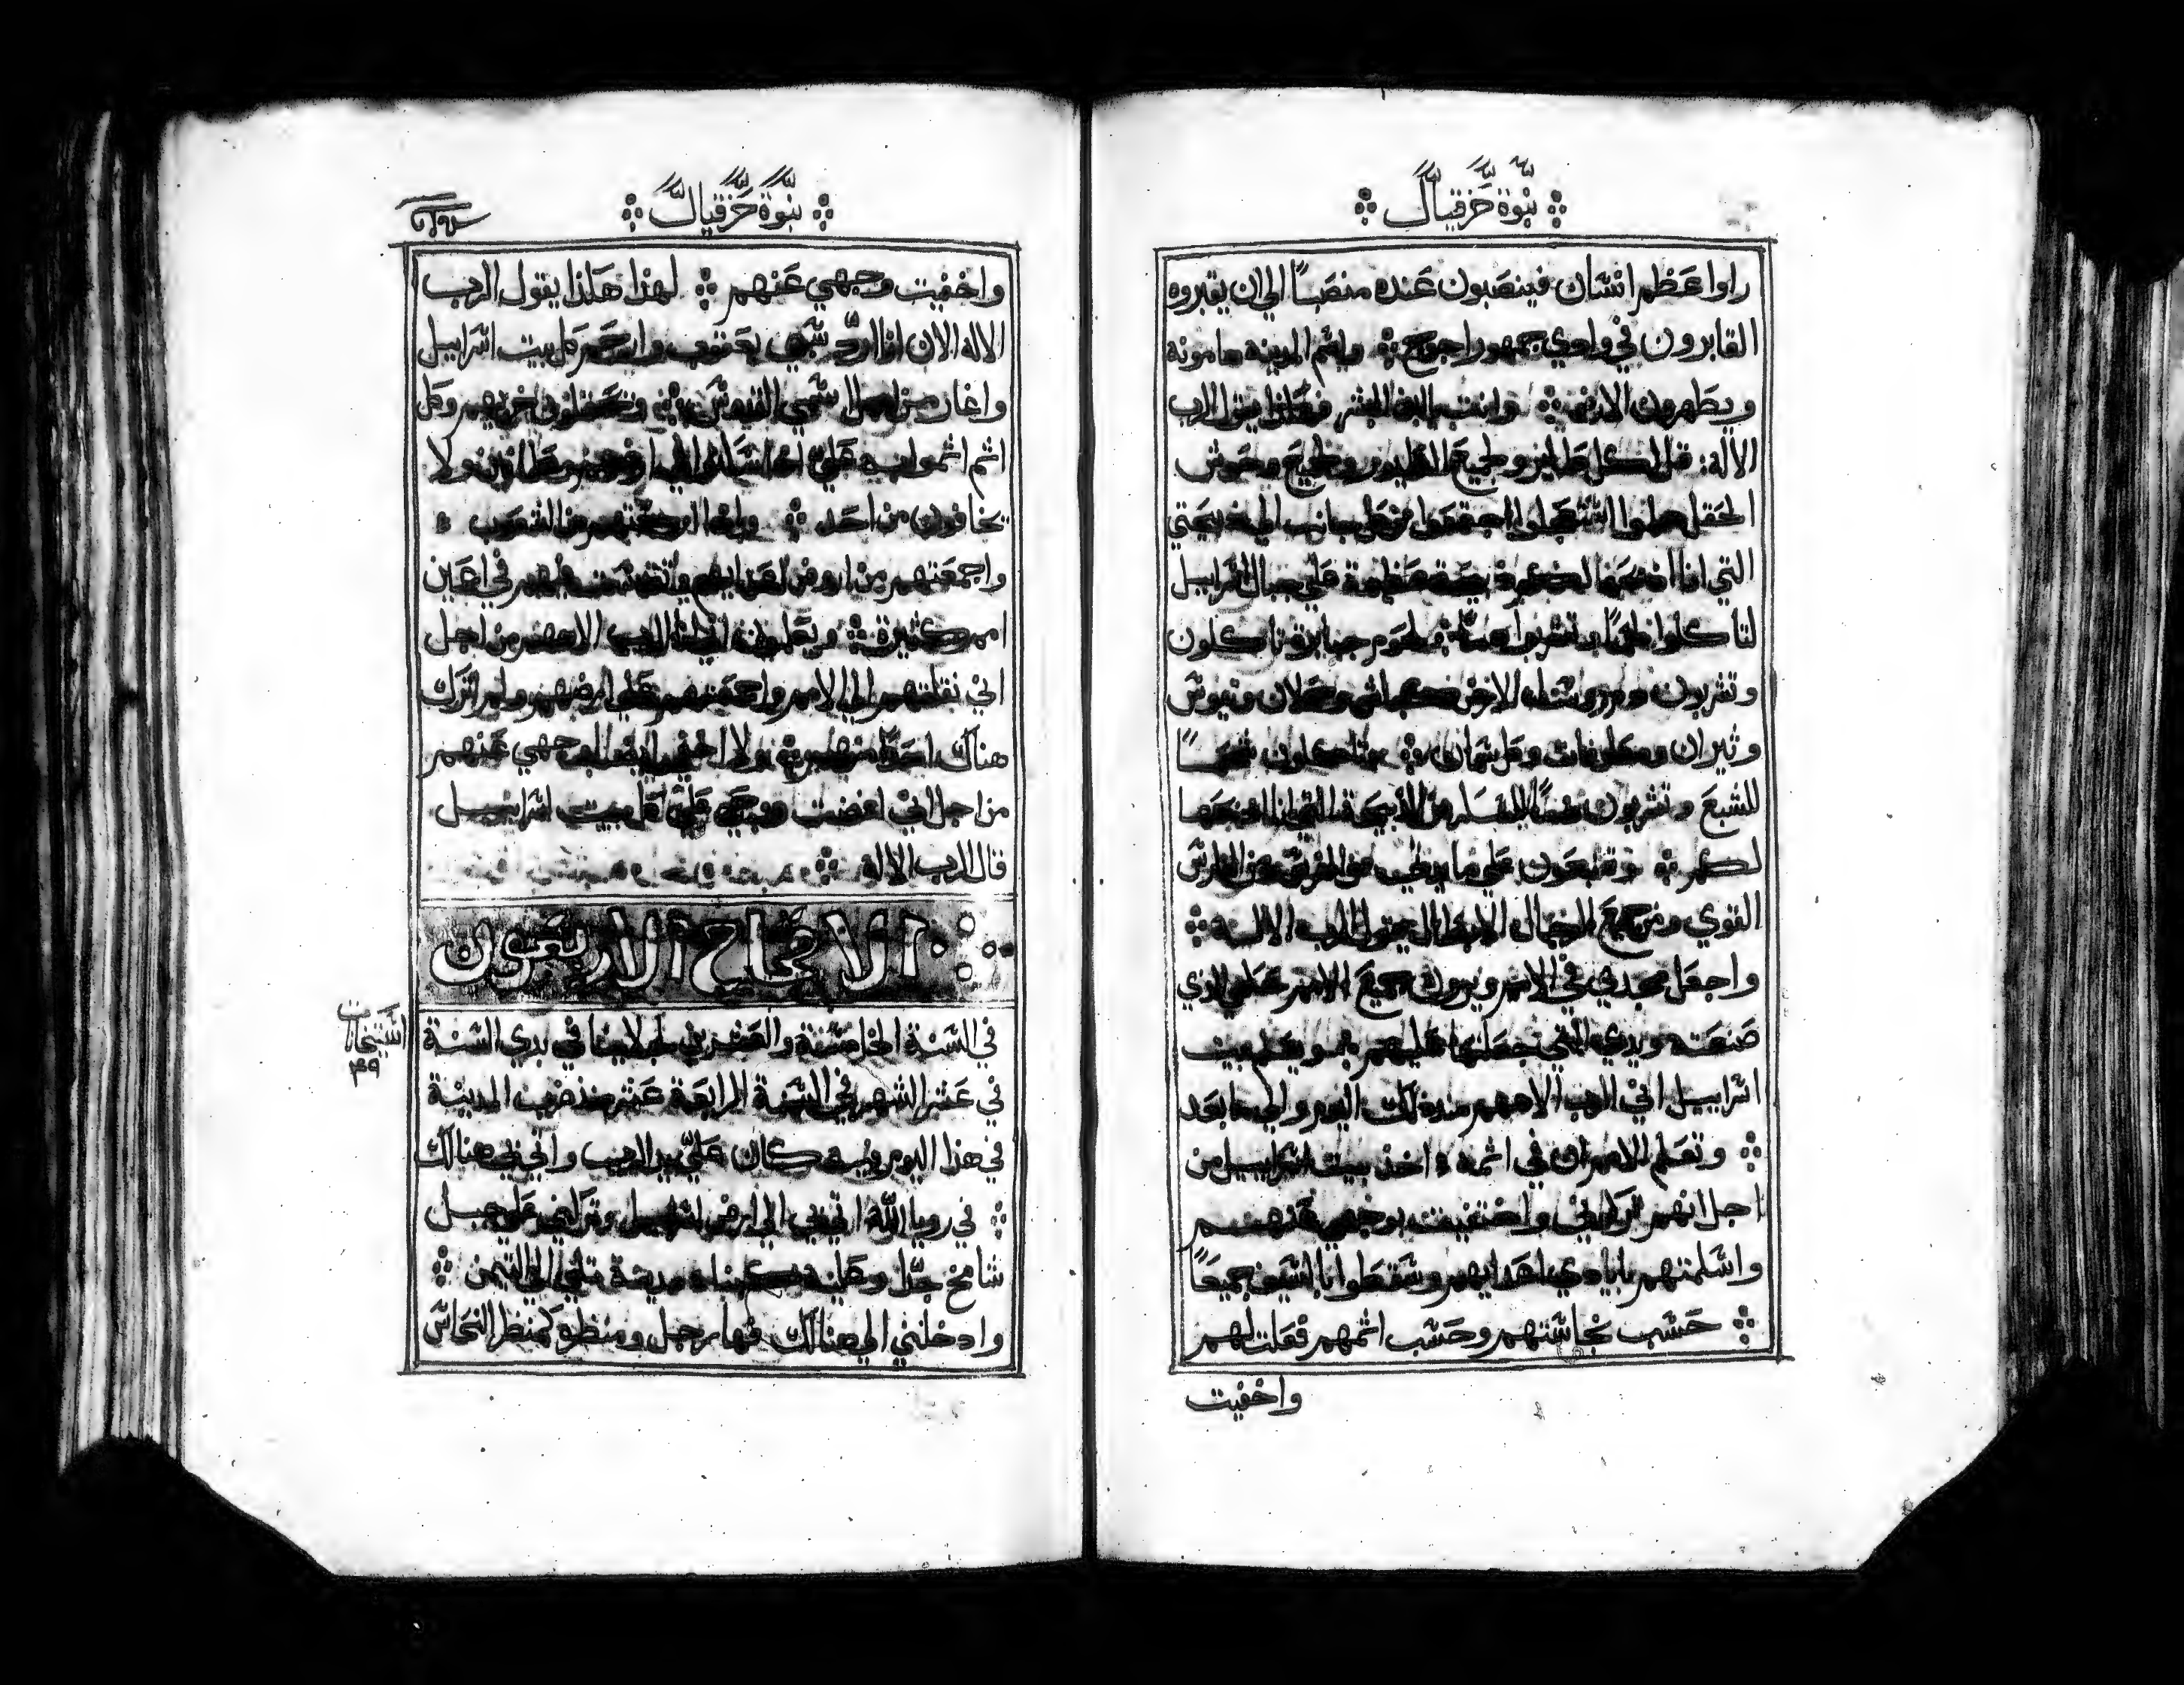 نبوة حزقيال
راوا عظم انسان فينصبون عنده منصباً الي ان يقبروه
القابرون في وادي جمهور اجوج واسم المدينه هامونه
ويطهرون الارض وانت يا ابن البشر فهكذا يقول الرب
الاله: قل لكل طاير ولجميع الطيور ولجميع وحوش
الحقل هلموا استعجلوا اجتمعوا من كل جانب الي ذبيحتي
التي انا اذبحها لكم ذبيحة عظيمة علي جبال اسراييل
لتاكلوا لحماً وتشربوا دماً لحوم جبابرة تاكلون
وتشربون دم روسا الارض كباش وحملان وتيوس
وثيران ومعلوفات وكل سمان وتاكلون شحماً
للشبع وتشربون دماً للسكر من الذبيحة التي انا اذبحها
لكم وتشبعون علي مايدتي من الفرس ومن الفارس
القوي ومن جميع الرجال الابطال يقول الرب الاله
واجعل مجدي في الامم ويرون جميع الامم حكمي الذي
صنعته ويدي التي جعلتها عليهم ويعلم بيت
اسراييل اني الرب الاههم منذ ذلك اليوم والي ما بعد
وتعلم الامم ان في اثمه اخذ بيت اسراييل من
اجل انهم تركوني واختفيت بوجهي عنهم
واسلمتهم بايادي اعدايهم وسقطوا بالسيف جميعاً
حسب نجاستهم وحسب اثمهم فعلت لهم
واخفيت
نبوة حزقيال
واخفيت وجهي عنهم لهذا هكذا يقول الرب
الاله الان انا ارد سبي يعقوب وارحم كل بيت اسراييل
واغار من اجل اسمي القدوس ويحملون خزيهم وكل
اثم اثموا به علي اذا سكنوا في ارضهم مطمانين ولا
يخافون من احد واذا ارجعتهم من الشعوب
واجمعتهم من ارض اعدايهم وتقدست فيهم في اعين
امم كثيرة ويعلمون اني انا الرب الاههم من اجل
اني نقلتهم الي الامم واجمعتهم علي ارضهم ولم اترك
هناك احداً منهم ولا اخفي ايضا وجهي عنهم
من اجل اني افضت روحي علي كل بيت اسراييل
قال الرب الاله
الاصحاح الاربعون
في السنة الخامسة والعشرين لجلاينا في بدي السنة
في عشر الشهر في السنة الرابعة عشر منذ ضرب المدينة
في هذا اليوم نفسه كان علي يد الرب واتي بي هنالك
في رويا الله اتي بي الي ارض اسراييل وتركني علي جبل
شامخ جداً وعليه كبناء مدينة تلي الي التيمن
وادخلني الي هنالك فها رجل ومنظره كمنظر النحاس